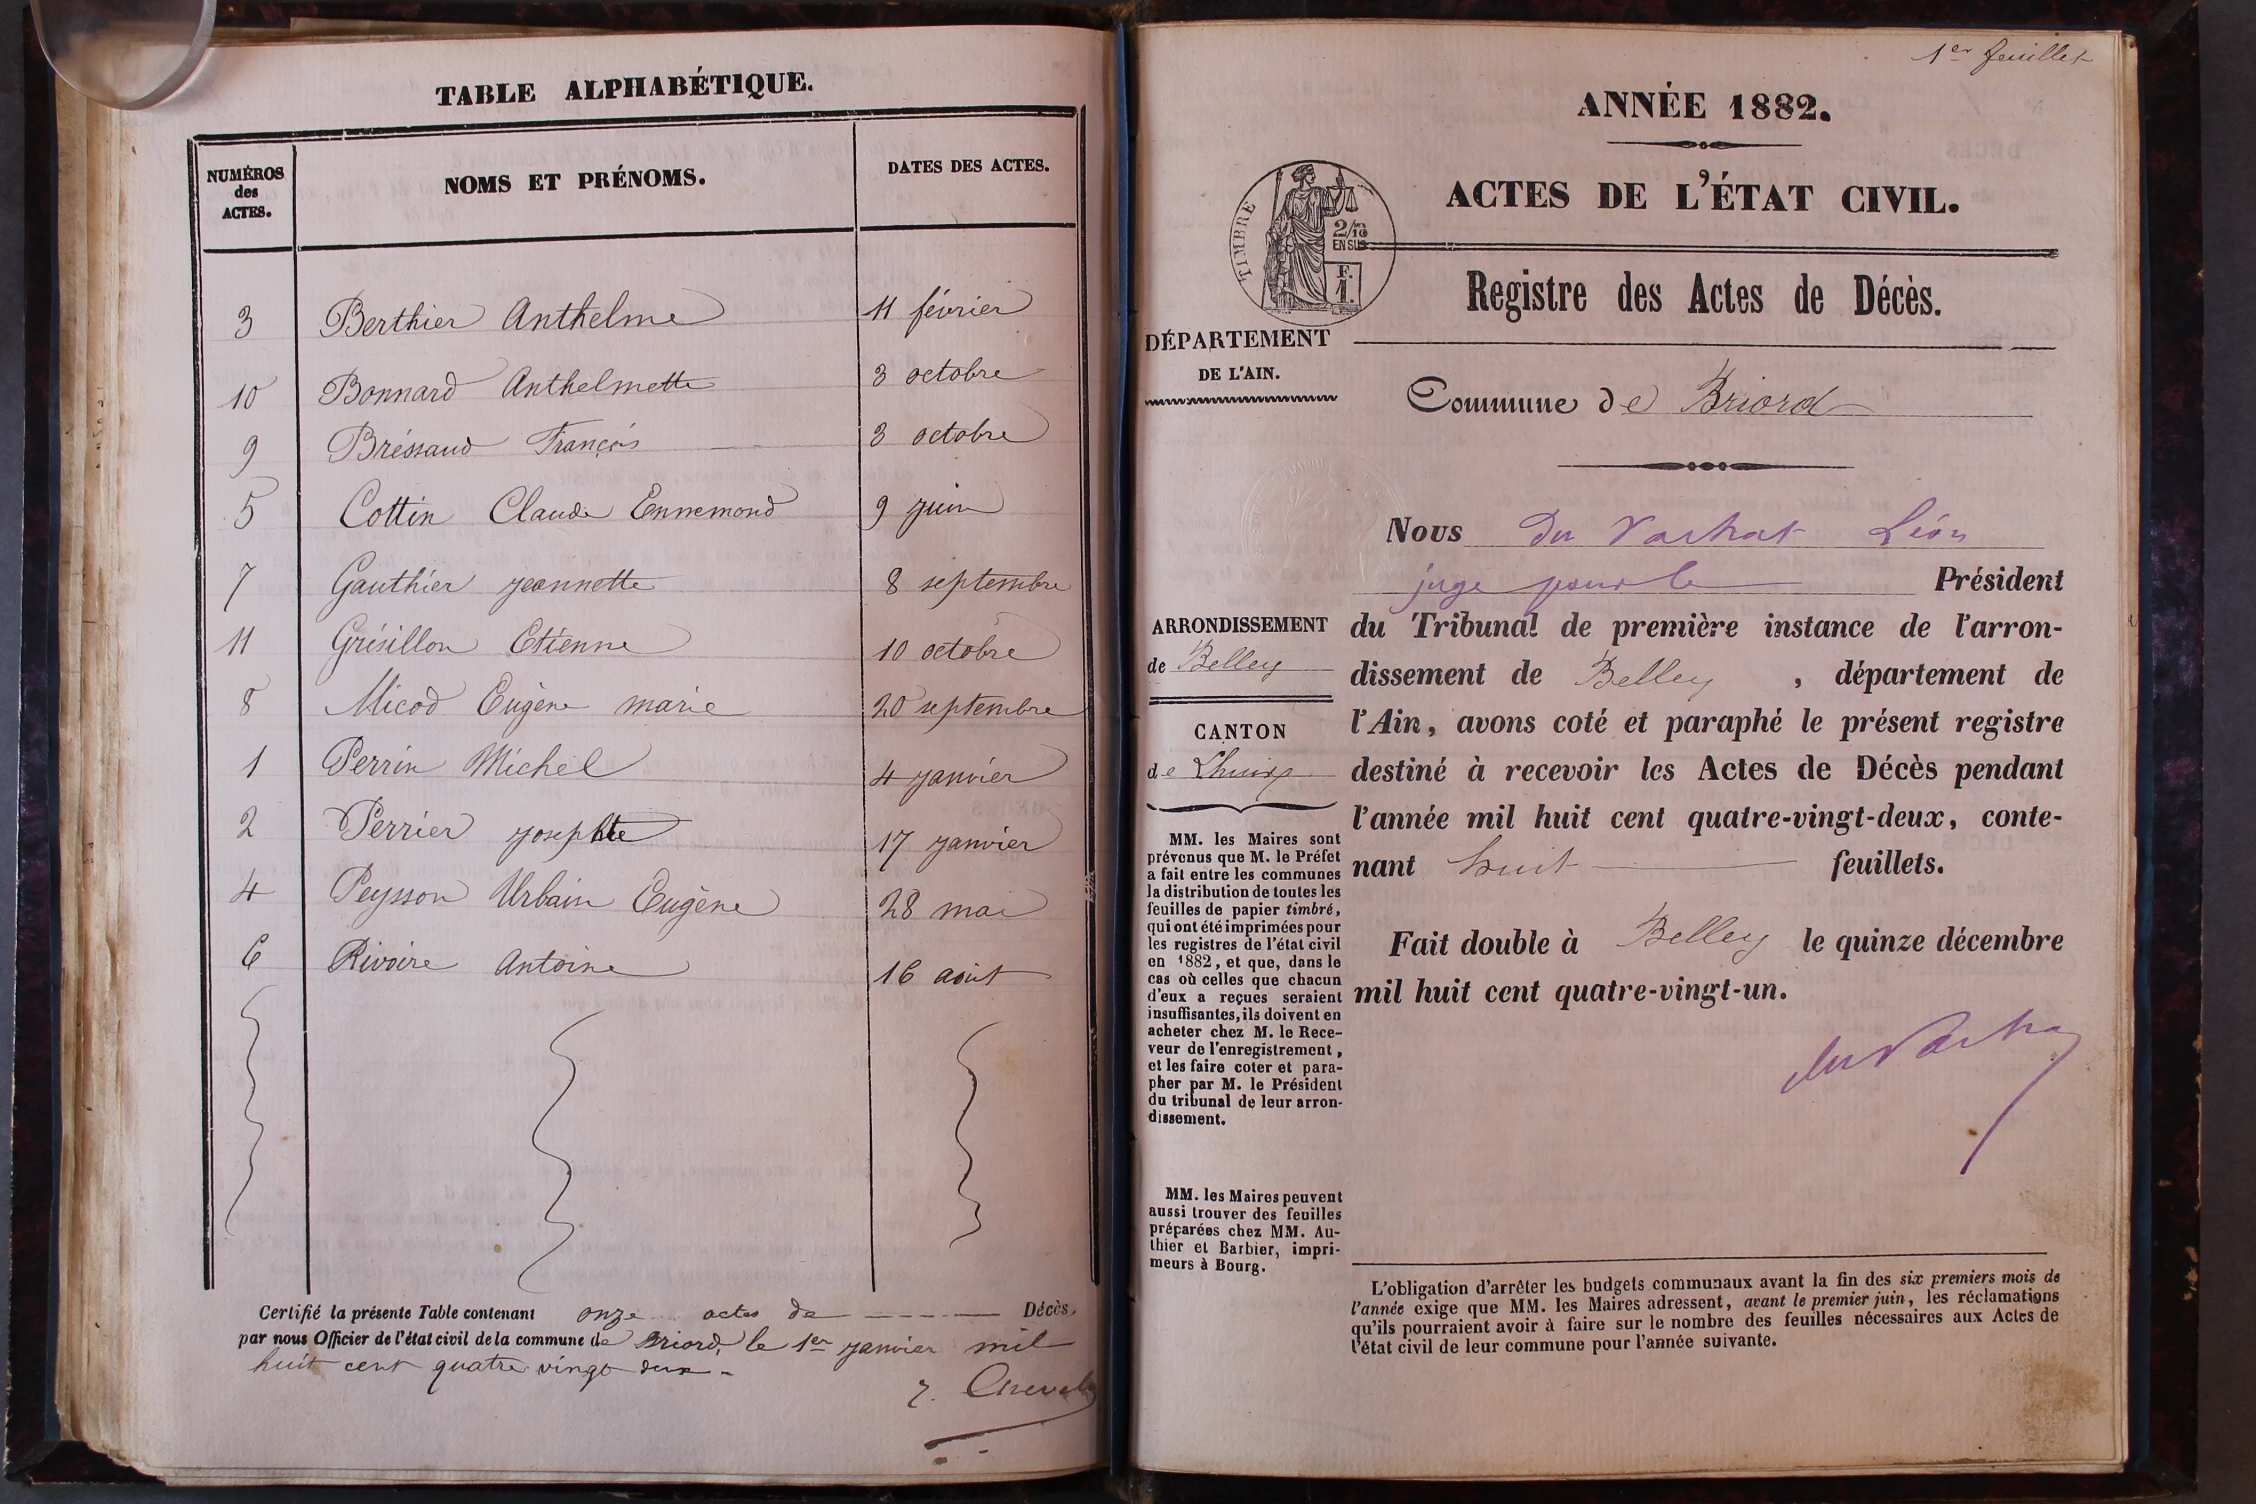 TABLE ALPHABÉTIQUE.
NUMÉROS des ACTES.
NOMS ET PRÉNOMS.
DATES DES ACTES.
3 Berthier Anthelme 11 février
10 Bonnard Anthelmette 3 octobre
9 Bressaud François 3 octobre
5 Cottin Claude Ennemond 9 juin
7 Gauthier jeannette 8 septembre
11 Grésillon Etienne 10 octobre
8 Micod Eugène marie 20 septembre
1 Perrin Michel 4 janvier
2 Perrier josephte 17 janvier
4 Peysson Urbain Eugène 28 mai
6 Rivoire Antoine 16 août
Certifié la présente Table contenant onze actes de Décès,
par nous Officier de l'état civil de la commune de Briord, le 1er janvier mil
huit cent quatre vingt deux
1er feuillet
ANNÉE 1882.
ACTES DE L'ÉTAT CIVIL.
TIMBRE
2/10
EN SUS
F.
1.
Registre des Actes de Décès.
DÉPARTEMENT
DE L'AIN.
Commune de Briord
Nous du Vachat Léon
juge pour le Président
du Tribunal de première instance de l'arron-
dissement de Belley, département de
l'Ain, avons coté et paraphé le présent registre
destiné à recevoir les Actes de Décès pendant
l'année mil huit cent quatre-vingt-deux, conte-
nant huit feuillets.
Fait double à Belley le quinze décembre
mil huit cent quatre-vingt-un.
du Vachat
ARRONDISSEMENT
de Belley
CANTON
de Lhuis
MM. les Maires sont
prévenus que M. le Préfet
a fait entre les communes
la distribution de toutes les
feuilles de papier timbré,
qui ont été imprimées pour
les registres de l'état civil
en 1882, et que, dans le
cas où celles que chacun
d'eux a reçues seraient
insuffisantes, ils doivent en
acheter chez M. le Rece-
veur de l'enregistrement,
et les faire coter et para-
pher par M. le Président
du tribunal de leur arron-
dissement.
MM. les Maires peuvent
aussi trouver des feuilles
préparées chez MM. Au-
thier et Barbier, impri-
meurs à Bourg.
L'obligation d'arrêter les budgets communaux avant la fin des six premiers mois de
l'année exige que MM. les Maires adressent, avant le premier juin, les réclamations
qu'ils pourraient avoir à faire sur le nombre des feuilles nécessaires aux Actes de
l'état civil de leur commune pour l'année suivante.